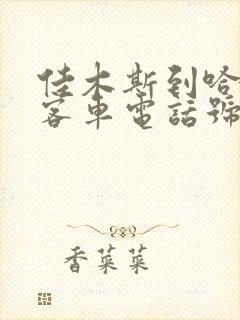 佳木斯到哈
客車電話號
香菜菜